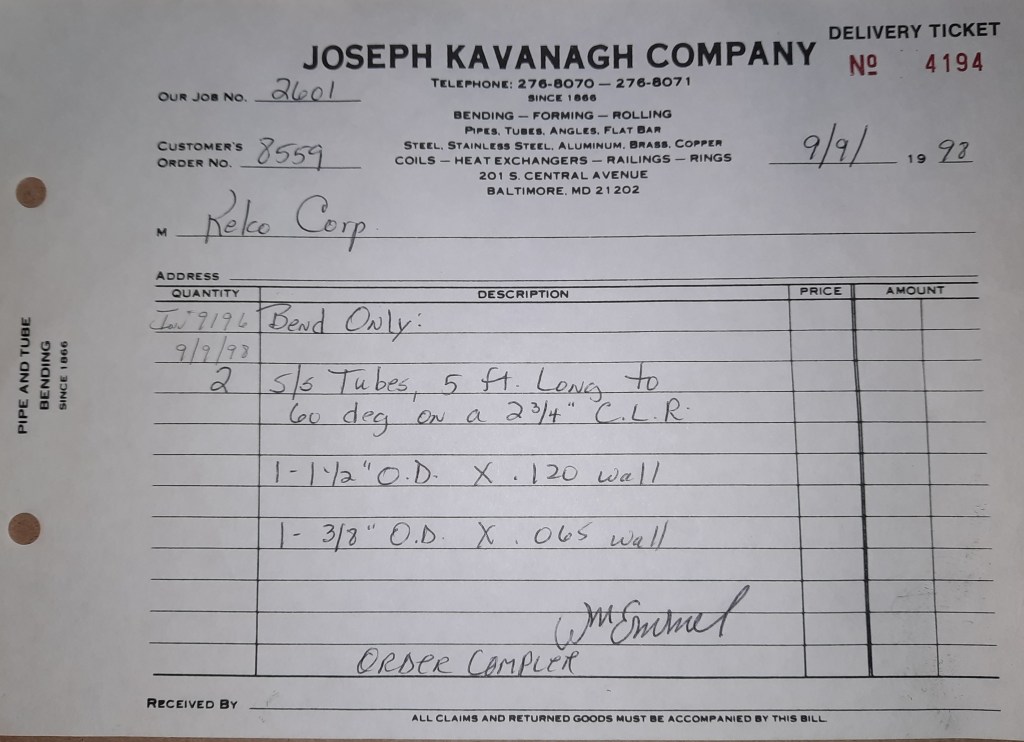 DELIVERY TICKET
JOSEPH KAVANAGH COMPANY
Nº 4194
TELEPHONE: 276-8070 — 276-8071
OUR JOB NO. 2601
SINCE 1866
BENDING — FORMING — ROLLING
PIPES, TUBES, ANGLES, FLAT BAR
CUSTOMER'S ORDER NO. 8559
STEEL, STAINLESS STEEL, ALUMINUM, BRASS, COPPER
COILS — HEAT EXCHANGERS — RAILINGS — RINGS
9/9/ 19 98
201 S. CENTRAL AVENUE
BALTIMORE, MD 21202
M Keko Corp
ADDRESS
QUANTITY DESCRIPTION PRICE AMOUNT
Inv 9196 Bend Only:
9/9/98
2 S/S Tubes, 5 ft. Long to
60 deg on a 2 3/4" C.L.R.
1 - 1-1/2" O.D. X .120 wall
1 - 3/8" O.D. X .065 wall
Wm Emmel
ORDER COMPLETE
RECEIVED BY
ALL CLAIMS AND RETURNED GOODS MUST BE ACCOMPANIED BY THIS BILL
PIPE AND TUBE
BENDING
SINCE 1866